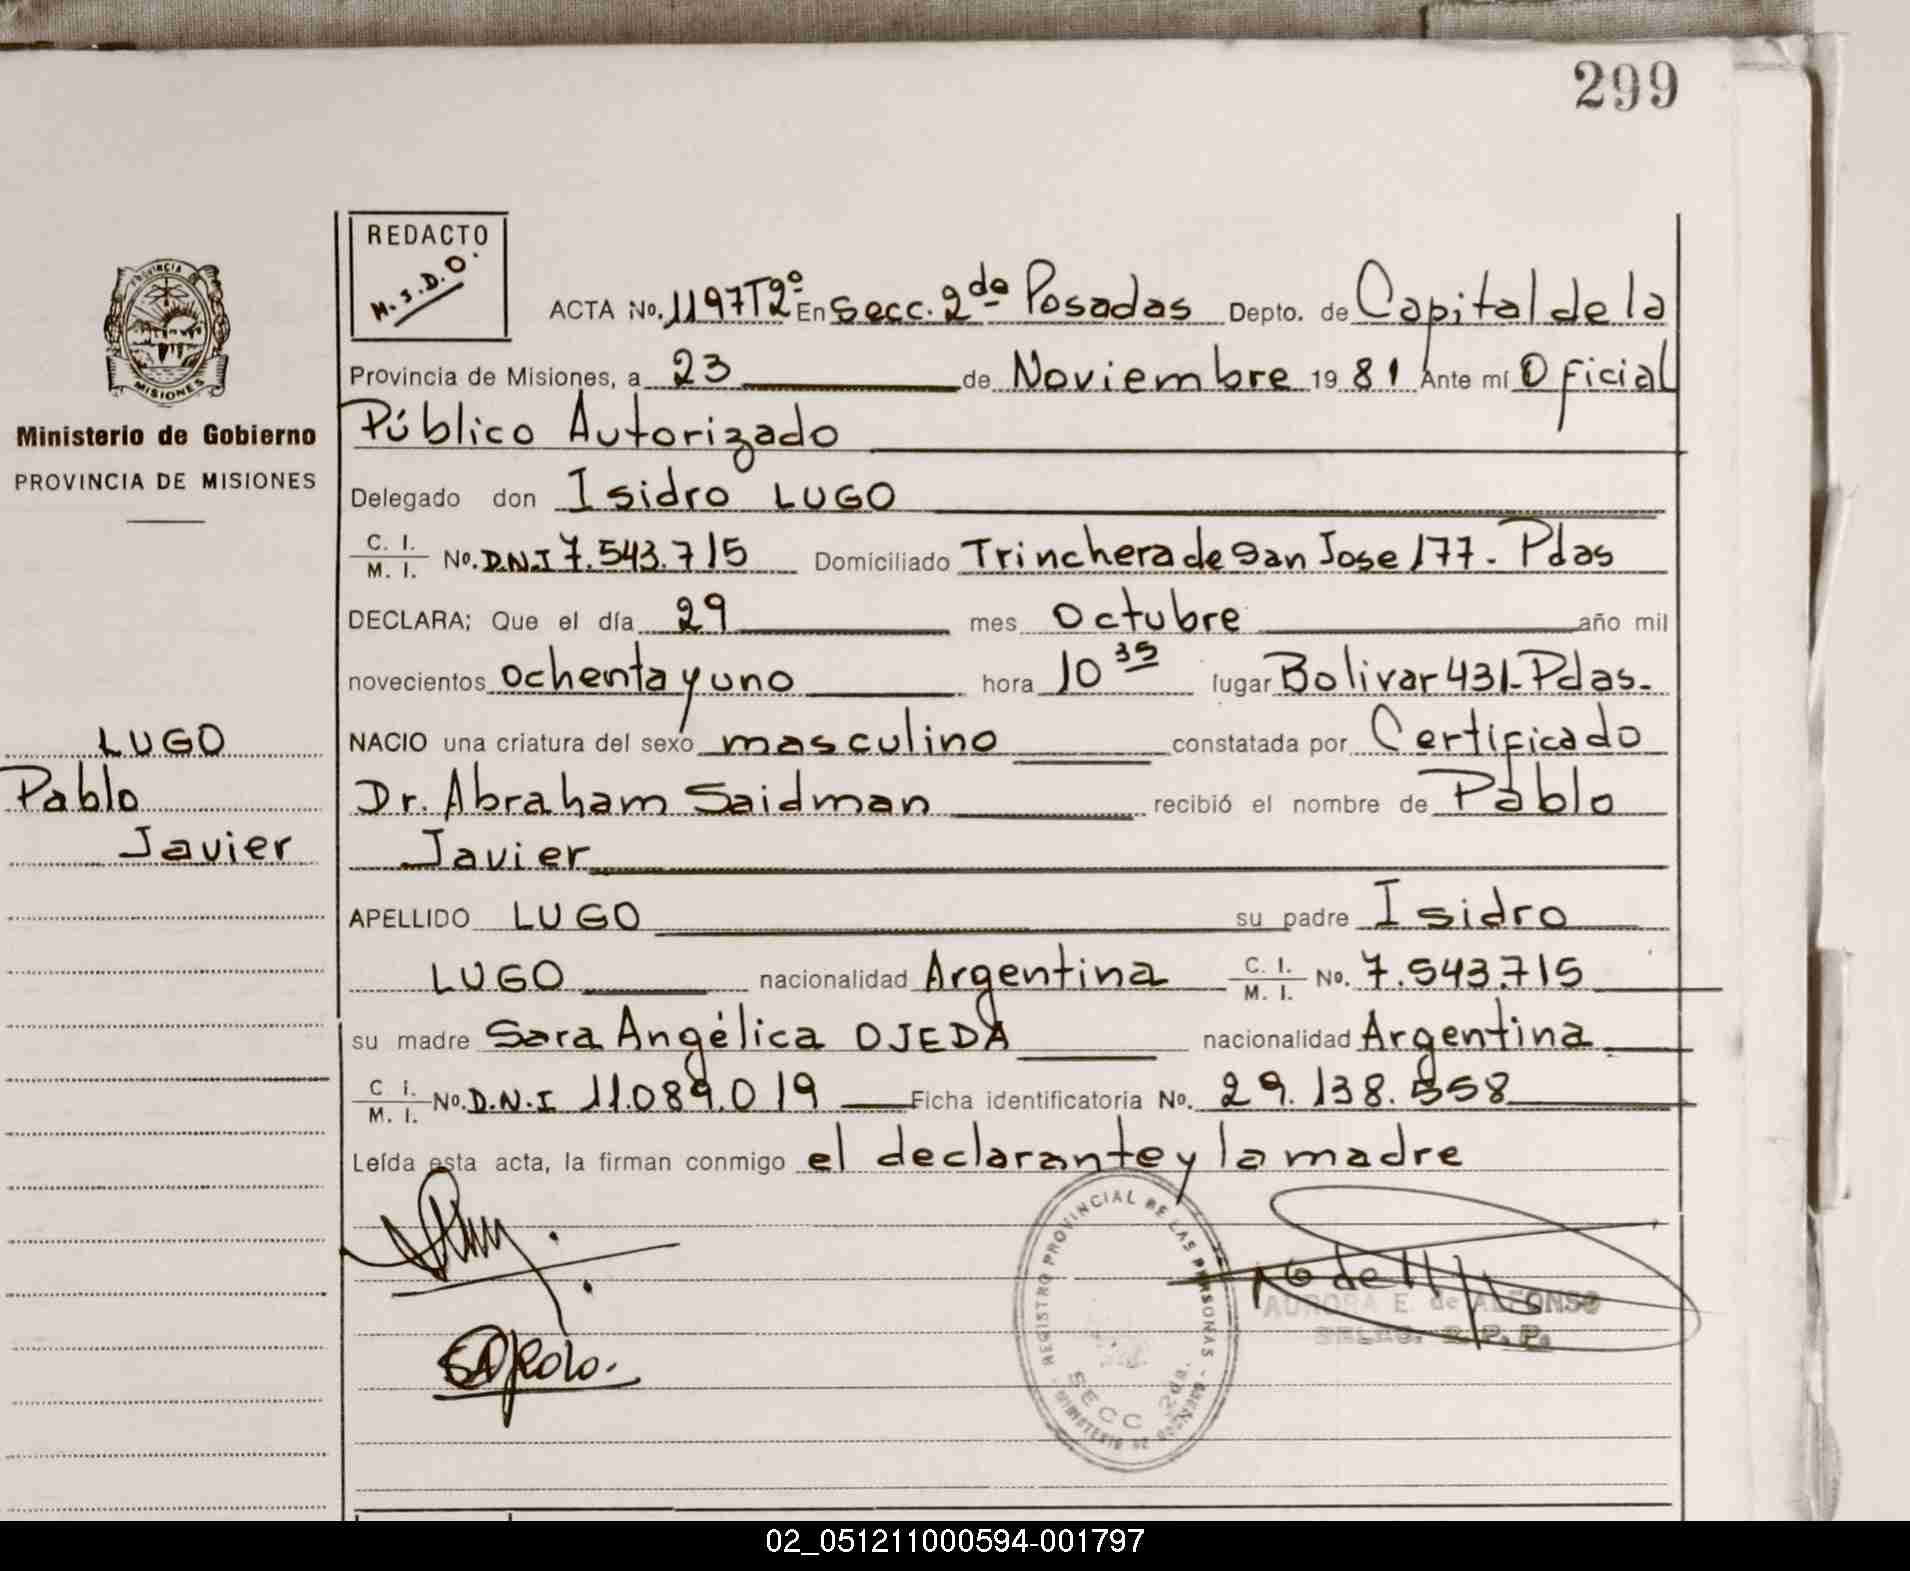 299
REDACTO
M.S.D.O.
ACTA No. 1197T2º En Secc. 2da Posadas Depto. de Capital de la
Provincia de Misiones, a 23 de Noviembre 19 81 Ante mí Oficial
Público Autorizado
Delegado don Isidro LUGO
C. I. / M. I. No. D.N.I 7.543.715 Domiciliado Trinchera de San Jose 177 - Pdas
DECLARA; Que el día 29 mes Octubre año mil
novecientos ochenta y uno hora 10 35 lugar Bolivar 431 - Pdas.
NACIO una criatura del sexo masculino constatada por Certificado
Dr. Abraham Saidman recibió el nombre de Pablo
Javier
APELLIDO LUGO su padre Isidro
LUGO nacionalidad Argentina C. I. / M. I. No. 7.543.715
su madre Sara Angélica OJEDA nacionalidad Argentina
C I. / M. I. No. D.N.I 11.089.019 Ficha identificatoria No. 29.138.558
Leída esta acta, la firman conmigo el declarante y la madre
PROVINCIA DE
MISIONES
Ministerio de Gobierno
PROVINCIA DE MISIONES
LUGO
Pablo
Javier
REGISTRO PROVINCIAL DE LAS PERSONAS
SECC 2da.
AURORA E de ALFONSO
R. P. P.
02_051211000594-001797